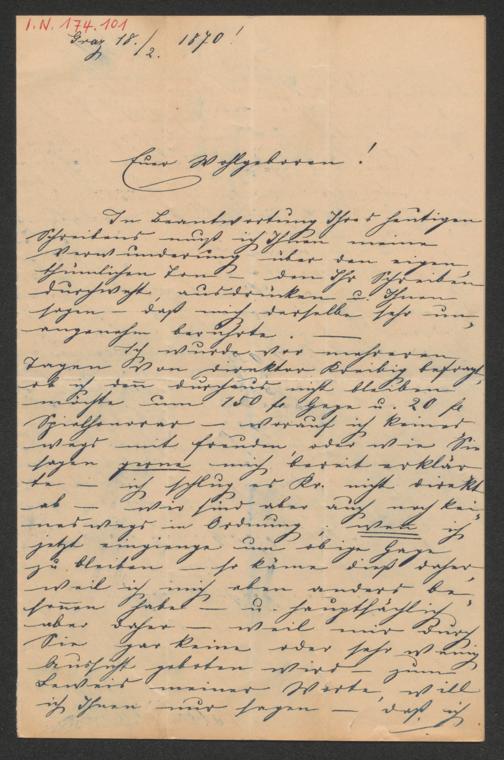 I.N. 174.101
Graz 18./2. 1870!
Euer Wohlgeboren!
In Beantwortung Ihres heutigen
Schreibens muß ich Ihnen meine
Verwunderung über den eigen
thümlichen Ton – den Ihr Schreiben
durchweht, ausdrücken u. Ihnen
sagen, daß mich derselbe sehr un„
angenehm berührte. —
Ich wurde vor mehreren
Tagen von Direktor Kreibig befragt,
ob ich denn durchaus nicht bleiben
möchte um 150 fl Gage u. 20 fl
Spielhonorar – worauf ich keines
wegs mit Freuden, oder wie Sie
sagen gerne mich bereit erklär
te – ich schlug es Kr. nicht direkt
ab – wir sind aber auch noch kei„
neswegs in Ordnung, wenn ich
jetzt eingienge um obige Gage
zu bleiben – so käme dieß daher,
weil ich mich eben anders be„
sonnen habe – u. hauptsächlich
aber daher – weil mir durch
Sie gar keine oder sehr wenig
Aussicht geboten wird – zum
Beweis meiner Worte, will
ich Ihnen nur sagen – daß ich